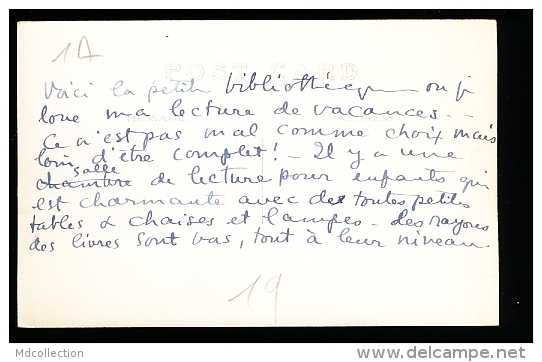 1A
POST CARD
Voici la petite bibliothèque où je
loue ma lecture de vacances. -
Ce n'est pas mal comme choix mais
loin d'être complet! - Il y a une
salle
chambre de lecture pour enfants qui
est charmante avec des toutes petites
tables & chaises et lampes - les rayons
des livres sont bas, tout à leur niveau.
19
Mdcollection
www.delcampe.net